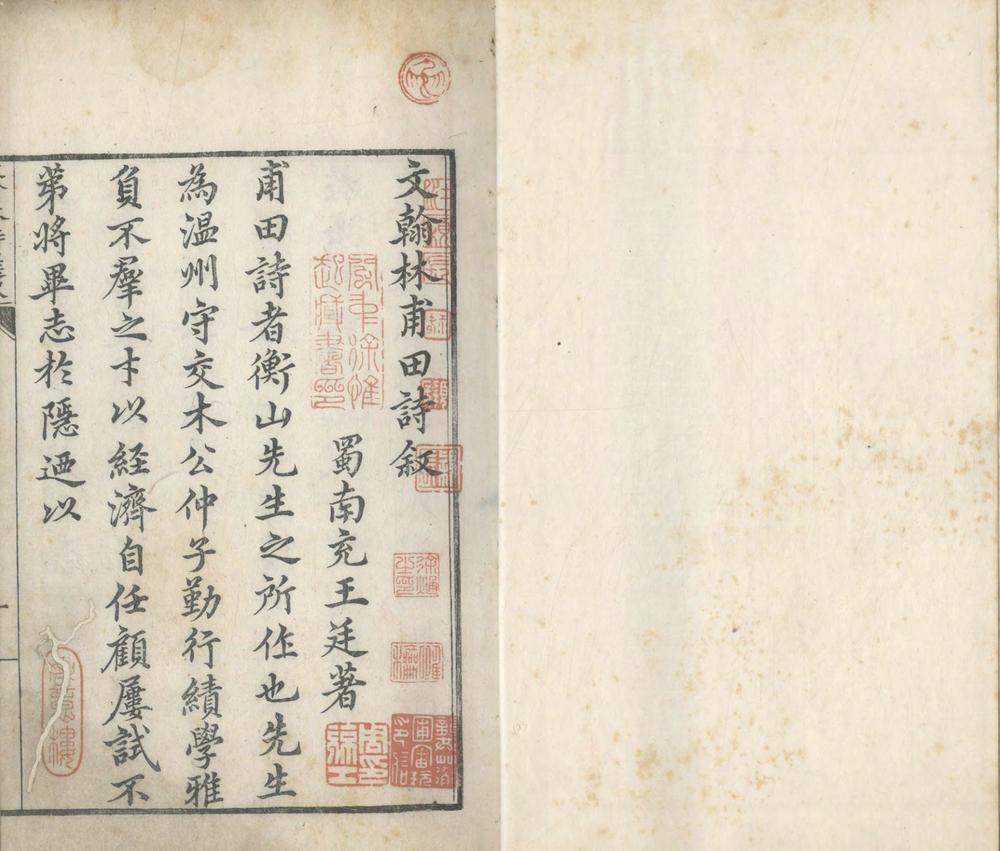 文翰林甫田詩叙
蜀南充王廷著
甫田詩者衡山先生之所作也先生
為温州守交木公仲子勤行績學雅
負不羣之才以経濟自任顧屢試不
第將畢志於隱迺以
閩中徐惟
起藏書印